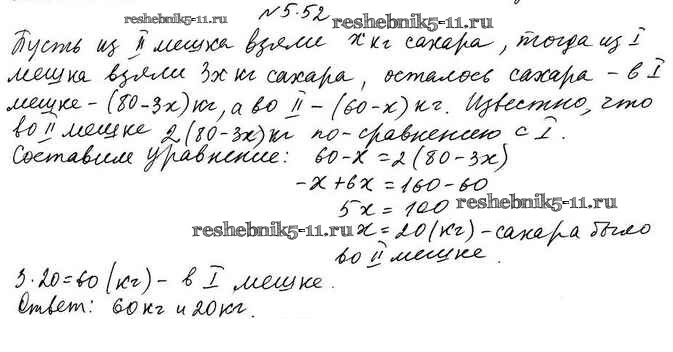 №5.52
reshebnik5-11.ru
Пусть из II мешка взяли x кг сахара, тогда из I
мешка взяли 3x кг сахара, осталось сахара - в I
мешке - (80-3x) кг, а во II - (60-x) кг. Известно, что
во II мешке 2(80-3x) кг по-сравнению с I.
Составим уравнение: 60-x=2(80-3x)
-x+6x=160-60
reshebnik5-11.ru
5x=100
reshebnik5-11.ru
x=20(кг)-сахара было
во II мешке.
3·20=60(кг)- в I мешке.
Ответ: 60кг и 20кг.